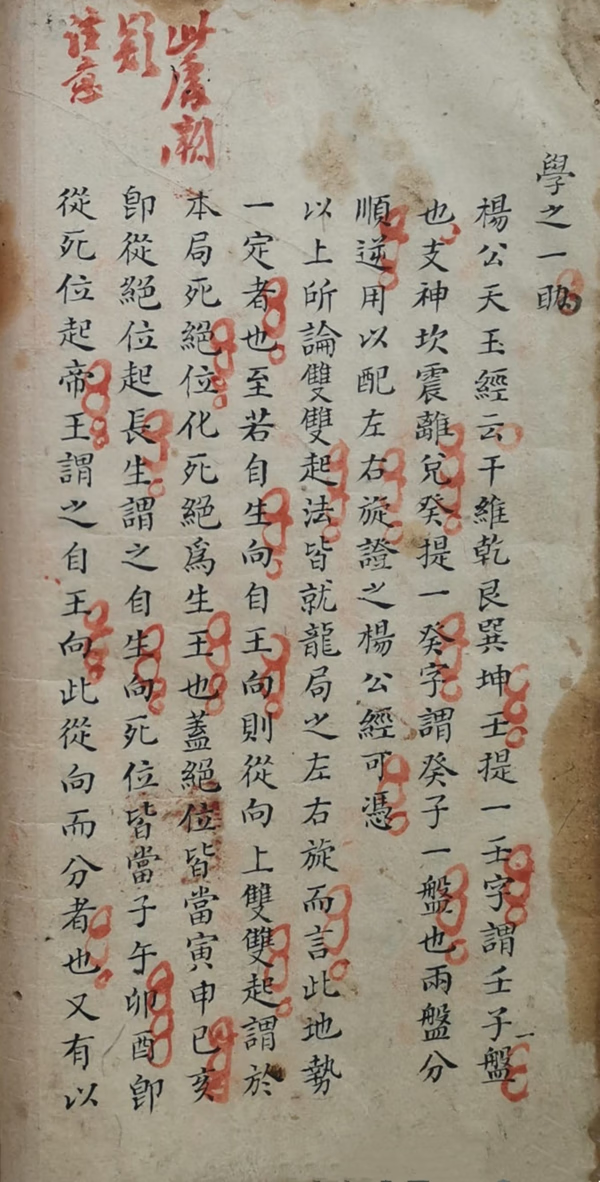 此處
注意
學之一助
楊公天玉經云干維乾艮巽坤壬提一壬字謂壬子一盤
也支神坎震離兌癸提一癸字謂癸子一盤也兩盤分
順逆用以配左右旋證之楊公經可憑
以上所論雙雙起法皆就龍局之左右旋而言此地勢
一定者也至若自生向自王向則從向上雙雙起謂於
本局死絕位化死絕爲生王也蓋絕位皆當寅申巳亥
卽從絕位起長生謂之自生向死位皆當子午卯酉卽
從死位起帝王謂之自王向此從向而分者也又有以